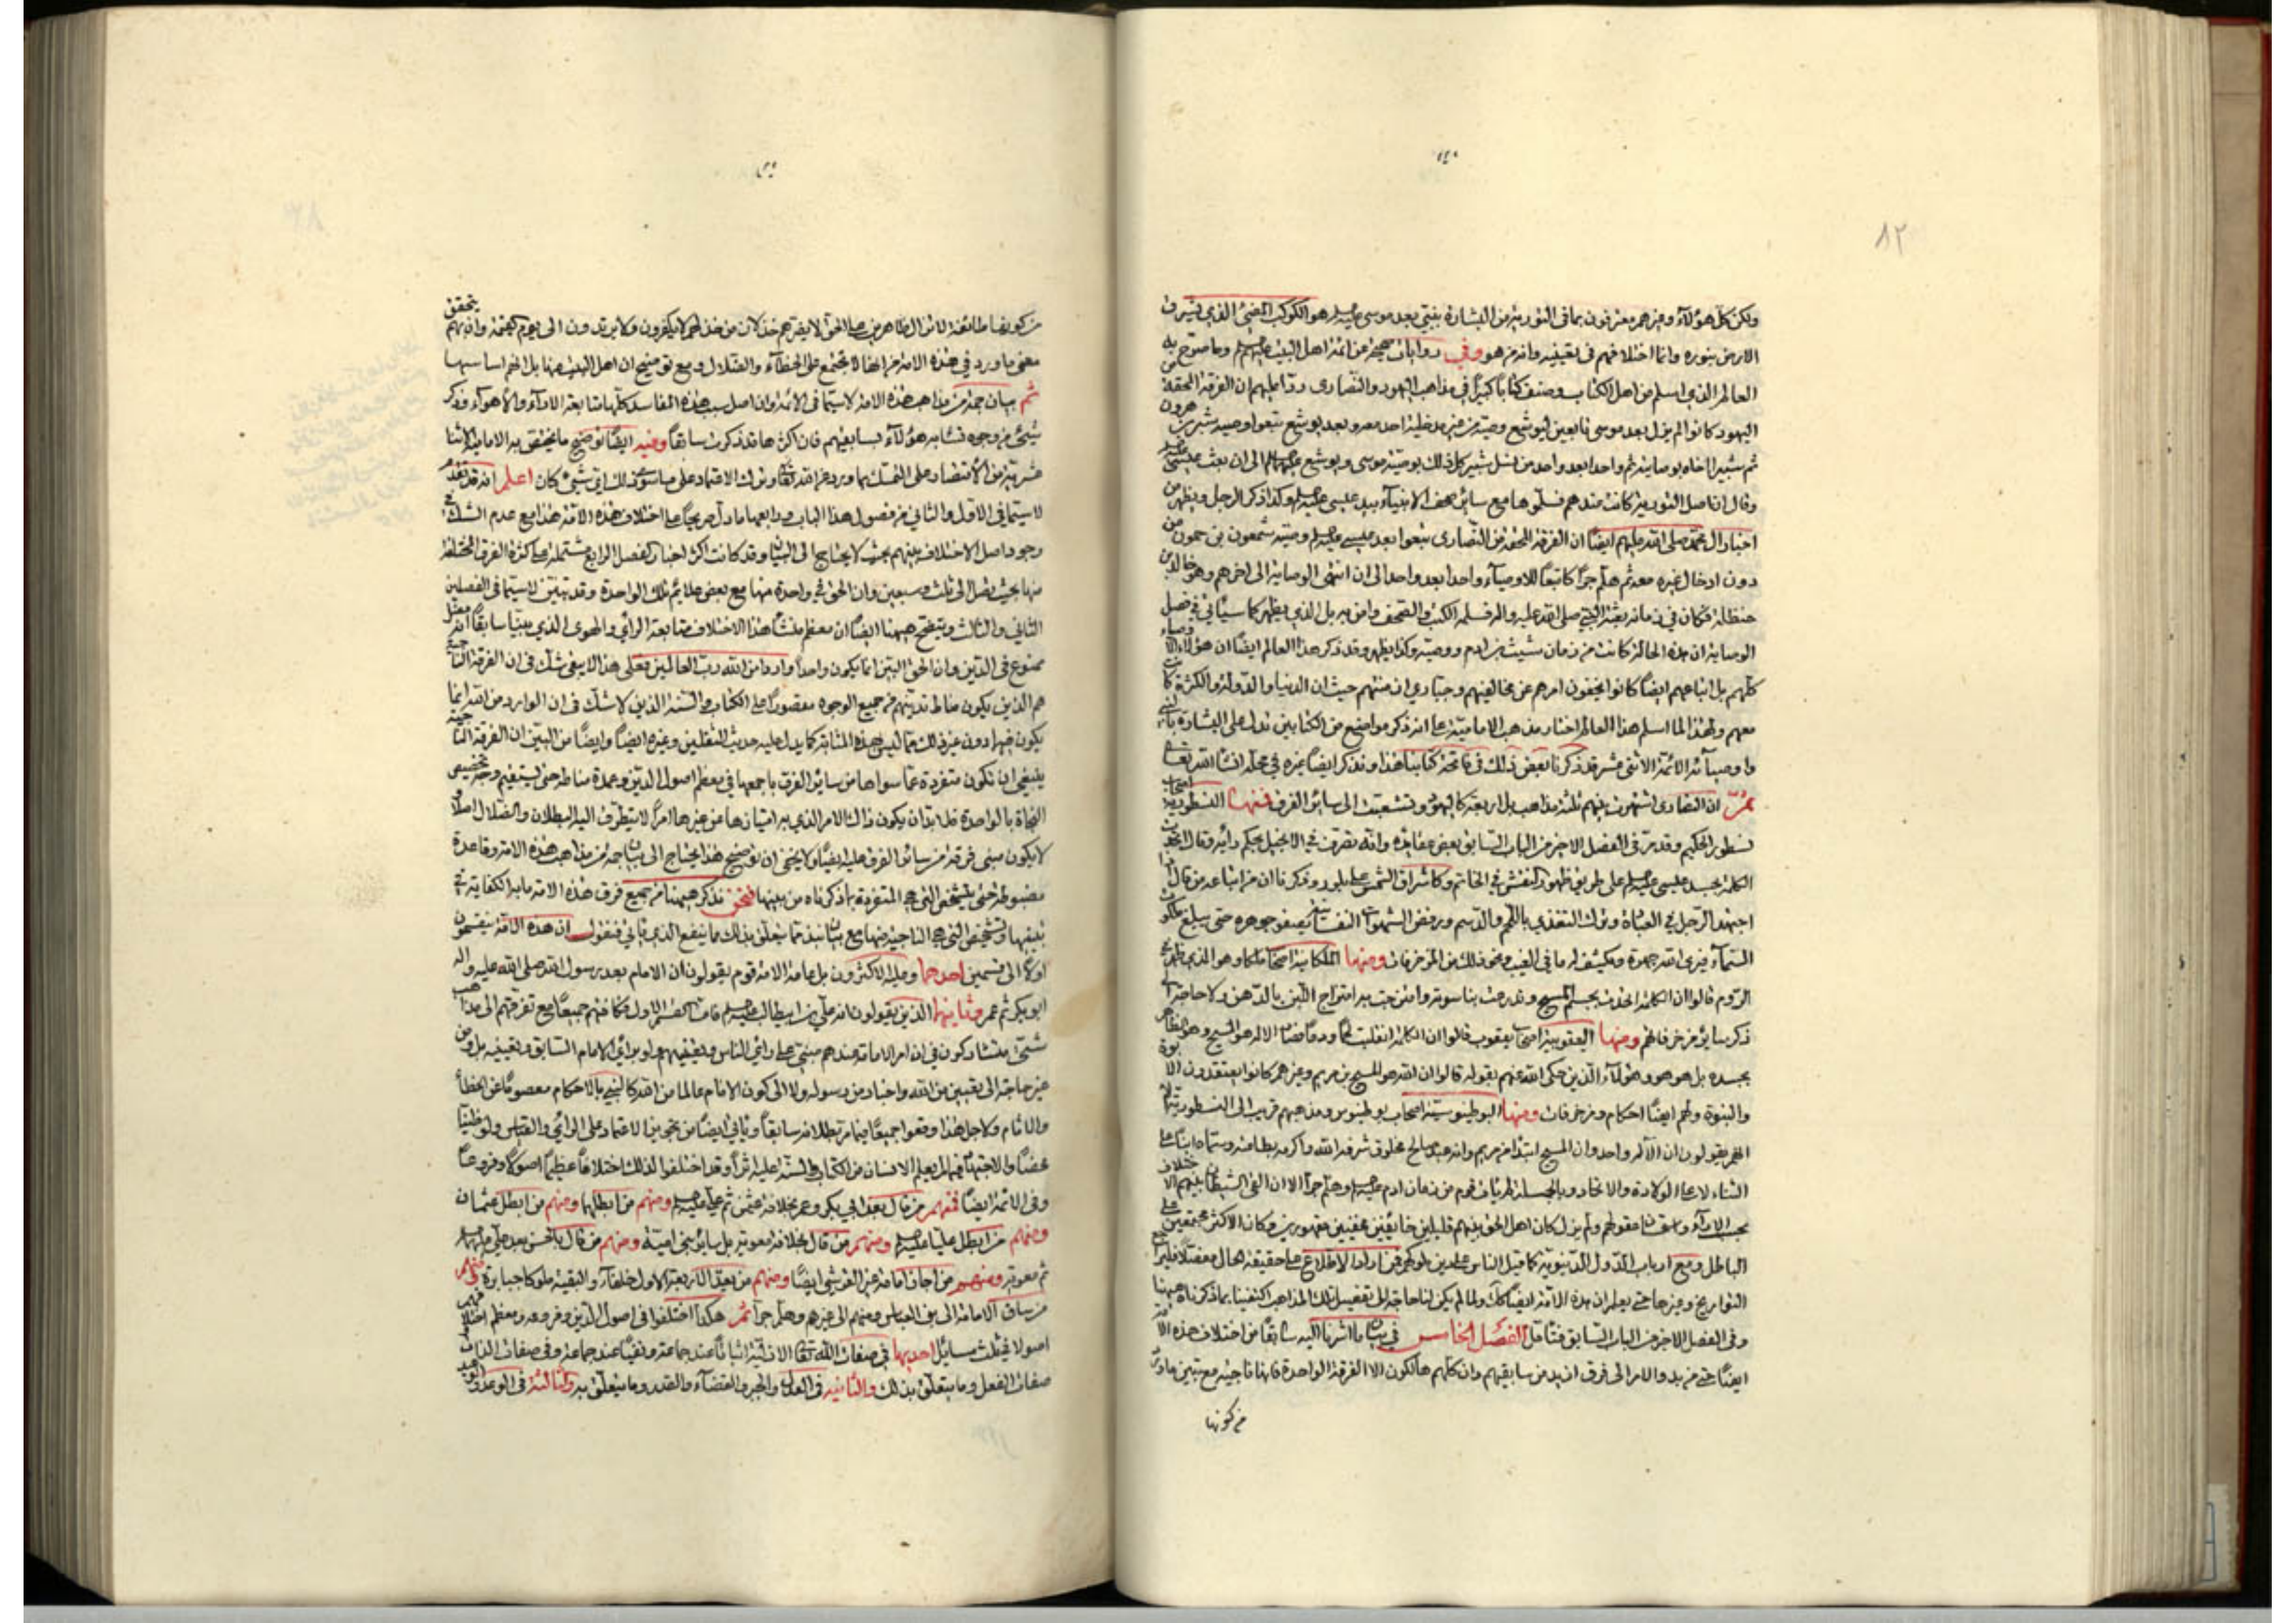 ٨٢
ولكن كل هؤلاء وغيرهم معترفون بما في التورية من البشارة بنبي بعد موسى عليه السلم هو الكوكب المضئ الذي تشرق
الارض بنوره وانما اختلافهم في تعيينه وانه من هو وفي روايات صحيحة عن ائمة اهل البيت عليهم السلم وما صرح به
العالم الذي اسلم من اهل الكتاب وصنف كتابا كبيرا في مذاهب اليهود والنصارى وردا عليهم ان الفرقة المحقة من
اليهود كانوا لم يزل بعد موسى تابعين ليوشع وصيته من غير مدخلية احد معه وبعد يوشع تبعوا وصيه شبر بن هرون
ثم شبيرا اخاه بوصايته ثم واحدا بعد واحد من نسل شبر كل ذلك بوصية موسى ويوشع عليهما السلم الى ان بعث عيسى عليه السلم
وقال ان اصل التورية كانت عندهم فسلموها مع سائر صحف الانبياء بيد عيسى عليه السلم وكذا ذكر الرجل ويظهر من
اخبار ال محمد صلى الله عليهم ايضا ان الفرقة المحقة من النصارى تبعوا بعد عيسى عليه السلم وصيته شمعون بن حمون من
دون ادخال غيره معه ثم هلم جرا كانوا تبعا للاوصياء واحدا بعد واحد الى ان انتهى الوصاية الى اخرهم وهو خالد بن
حنظلة فكان في زمانه بعثة النبي صلى الله عليه واله فسلمه الكتب والصحف وامن به بل الذي يظهر كما سياتي في فصل
الوصاية ان هذه الحالة كانت من زمان شيث بن ادم ووصيه وكذا يظهر وقد ذكر هذا العالم ايضا ان هؤلاء الاوصياء
كلهم بل اتباعهم ايضا كانوا يخفون امرهم عن مخالفيهم وجباري ازمنتهم حيث ان الدنيا والدولة والكثرة كانت
معهم ولهذا لما اسلم هذا العالم اختار مذهب الامامية على انه ذكر مواضع من الكتابين تدل على البشارة بالنبي
واوصيائه الائمة الاثنى عشر قد ذكرنا بعض ذلك في فاتحة كتابنا هذا ونذكر ايضا غيره في محله انشا الله تعالى
ثم ان النصارى اشتهرت بينهم ثلثة مذاهب بل اربعة كاليهود وتشعبت الى سائر الفرق فمنها النسطورية اصحاب
نسطور الحكيم وقد مر في الفصل الاخير من الباب السابق بعض عقايده وانه تصرف في الانجيل بحكم رأيه وقال اتحدت
الكلمة بجسد عيسى عليه السلم على طريق ظهور النقش في الخاتم وكاشراق الشمس على بلور وذكرنا ان من اتباعه من قال اذا
اجتهد الرجل في العبادة وترك التغذي باللحم والدسم ورفض الشهوات النفسانية يصفو جوهره حتى يبلغ ملكوت
السماء فيرى الله جهرة وينكشف له ما في الغيب ونحو ذلك من المزخرفات ومنها الملكائية اصحاب ملكا وهو الذي ظهر في
الروم قالوا ان الكلمة اتحدت بجسد المسيح وتدرعت بناسوته وامتزجت به امتزاج اللبن بالدهن ولا حاجة الى
ذكر سائر مزخرفاتهم ومنها اليعقوبية اصحاب يعقوب قالوا ان الكلمة انقلبت لحما ودما فصار الاله هو المسيح وهو الظاهر
بجسده بل هو هو وهؤلاء الذين حكى الله عنهم بقوله قالوا ان الله هو المسيح بن مريم وغيرهم كانوا يعتقدون الابوة
والبنوة ولهم ايضا احكام ومزخرفات ومنها البوطينوسية اصحاب بوطينوس ومذهبهم قريب الى النسطورية
انهم يقولون ان الاله واحد وان المسيح ابتدا من مريم وانه عبد صالح مخلوق شرفه الله واكرمه بطاعته وسماه ابنا على
الثناء لا على الولادة والاتحاد وبالجملة لم يات قوم من زمان ادم عليه السلم وهلم جرا الا ان القى الشيطان بينهم الاختلاف
بحسب الاراء وعلى قدر عقولهم ولم يزل كان اهل الحق بينهم قليلين خائفين مختفين مقهورين وكان الاكثر مجتمعين على
الباطل ومع ارباب الدول الدنيوية كما قيل الناس على دين ملوكهم فمن اراد الاطلاع على حقيقة الحال مفصلا فليراجع
التواريخ وغيرها حتى يعلم ان هذه الامة ايضا كك ولما لم يكن لنا حاجة الى تفصيل تلك المذاهب اكتفينا بما ذكرناه هيهنا
وفي الفصل الاخير من الباب السابق فتامل الفصل الخامس في بيان ما اشرنا اليه سابقا من اختلاف هذه الامة
ايضا حتى مزيد والامر الى فرق ازيد من سابقيهم وان كلهم هالكون الا الفرقة الواحدة فانها ناجية مع تبين ما ورد
من كونها
من كونها طائفة لا تزال ظاهرين على الحق لا يضرهم خذلان من خذلهم لا يكفرون ولا يرتدون الى يوم القيمة وانه بهم يتحقق
معنى ما ورد في هذه الامة من انها لا تجتمع على الخطاء والضلال ومع توضيح ان اهل البيت منها بل انهم اساسها
ثم بيان جملة من مذاهب هذه الامة لا سيما في الائمة وان اصل سبب هذه المفاسد كلها متابعة الاراء والاهواء وذكر
شئ من وجوه تشابه هؤلاء بسابقيهم فان اكثرها قد ذكرت سابقا وفيه ايضا توضيح ما يختص به الامامية الاثنا
عشرية من الاقتصار على التمسك بما ورد عن الله تعالى وترك الاعتماد على ما سوى ذلك اي شئ كان اعلم انه قد تقدم
لا سيما في الاول والثاني من فصول هذا الباب ورابعها ما دل صريحا على اختلاف هذه الامة هذا مع عدم الشك في
وجود اصل الاختلاف بينهم بحيث لا يحتاج الى البيان وقد كانت اكثر اخبار الفصل الرابع مشتملة على كثرة الفرق المختلفة
منها بحيث تصل الى ثلث وسبعين وان الحق في واحدة منها مع بعض علائم تلك الواحدة وقد تبين لا سيما في الفصلين
الثاني والثالث ويتضح هيهنا ايضا ان معظم منشأ هذا الاختلاف متابعة الرأي والهوى الذي بينا سابقا انه
ممنوع في الدين وان الحق البين انما يكون واحدا واردا من الله رب العالمين فعلى هذا لا يبقى شك في ان الفرقة الناجية
هم الذين يكون مناط تدينهم من جميع الوجوه مقصورا على الكتاب والسنة الذين لا شك في ان الوارد من الله انما
يكون فيهما دون غير ذلك مما ليس بهذه المثابة كما يدل عليه حديث الثقلين وغيره ايضا وايضا من البين ان الفرقة الناجية
ينبغي ان تكون متفردة عما سواها من سائر الفرق باجمعها في معظم اصول الدين وعمدة مناطه حتى يستقيم وجه تخصيص
النجاة بالواحدة فلا بد ان يكون ذلك الامر الذي به امتيازها عن غيرها امرا لا يتطرق اليه البطلان والضلال اصلا
لا يكون مبنى فرقة من سائر الفرق عليه ايضا ولا يخفى ان توضيح هذا يحتاج الى بيان جملة من مذاهب هذه الامة وقاعدة
مضبوطة حتى يتشخص التي هي المتفردة بما ذكرناه من بينها فنحن نذكر هيهنا من جميع فرق هذه الامة ما به الكفاية في
تبيينها وتشخيص التي هي الناجية منها مع بيان نبذ مما يتعلق بذلك مما ينفع الذي ياتي فنقول ان هذه الامة ينقسمون
اولا الى قسمين احدهما وعليه الاكثرون بل عامة الامة قوم يقولون ان الامام بعد رسول الله صلى الله عليه واله
ابو بكر ثم عمر وثانيهما الذين يقولون انه علي بن ابيطالب عليه السلم فاما القسم الاول فكافتهم جميعا مع تفرقهم الى مذاهب
شتى متشاركون في ان امر الامامة عندهم مبني على رأي الناس وتعيينهم ولو برأي الامام السابق وتعيينه بل ومن
غير حاجة الى تعيين من الله واخبار من رسوله ولا الى كون الامام عالما من الله كالنبي بالاحكام معصوما عن الخطأ
والاثام ولاجل هذا وقعوا جميعا فيما مر بطلانه سابقا وياتي ايضا من تجويز الاعتماد على الرأي والقياس ولو ظنيا
محضا والاجتهاد فيما لم يعلم الانسان من الكتاب والسنة عليه اثرا وقد اختلفوا لذلك اختلافا عظيما اصولا وفروعا
وفي الائمة ايضا فمنهم من قال بعد ابي بكر وعمر بخلافة عثمن ثم علي عليه السلم ومنهم من ابطلهما ومنهم من ابطل عثمان
ومنهم من ابطل عليا عليه السلم ومنهم من قال بخلافة معوية بل سائر بني امية ومنهم من قال بالحسن بعد علي عليهما السلم
ثم معوية ومنهم من اجاز امامة غير القرشي ايضا ومنهم من يعد الاربعة الاول خلفاء والبقية ملوكا جبابرة ومنهم
من ساق الامامة الى بني العباس ومنهم الى غيرهم وهلم جرا ثم هكذا اختلفوا في اصول الدين وفروعه ومعظم اختلافهم
اصولا في ثلث مسائل احديها في صفات الله تعالى الازلية اثباتا عند جماعة ونفيا عند جماعة وفي صفات الذات
صفات الفعل وما يتعلق بذلك والثانية في العدل والجبر والقضاء والقدر وما يتعلق به والثالثة في الوعد والوعيد